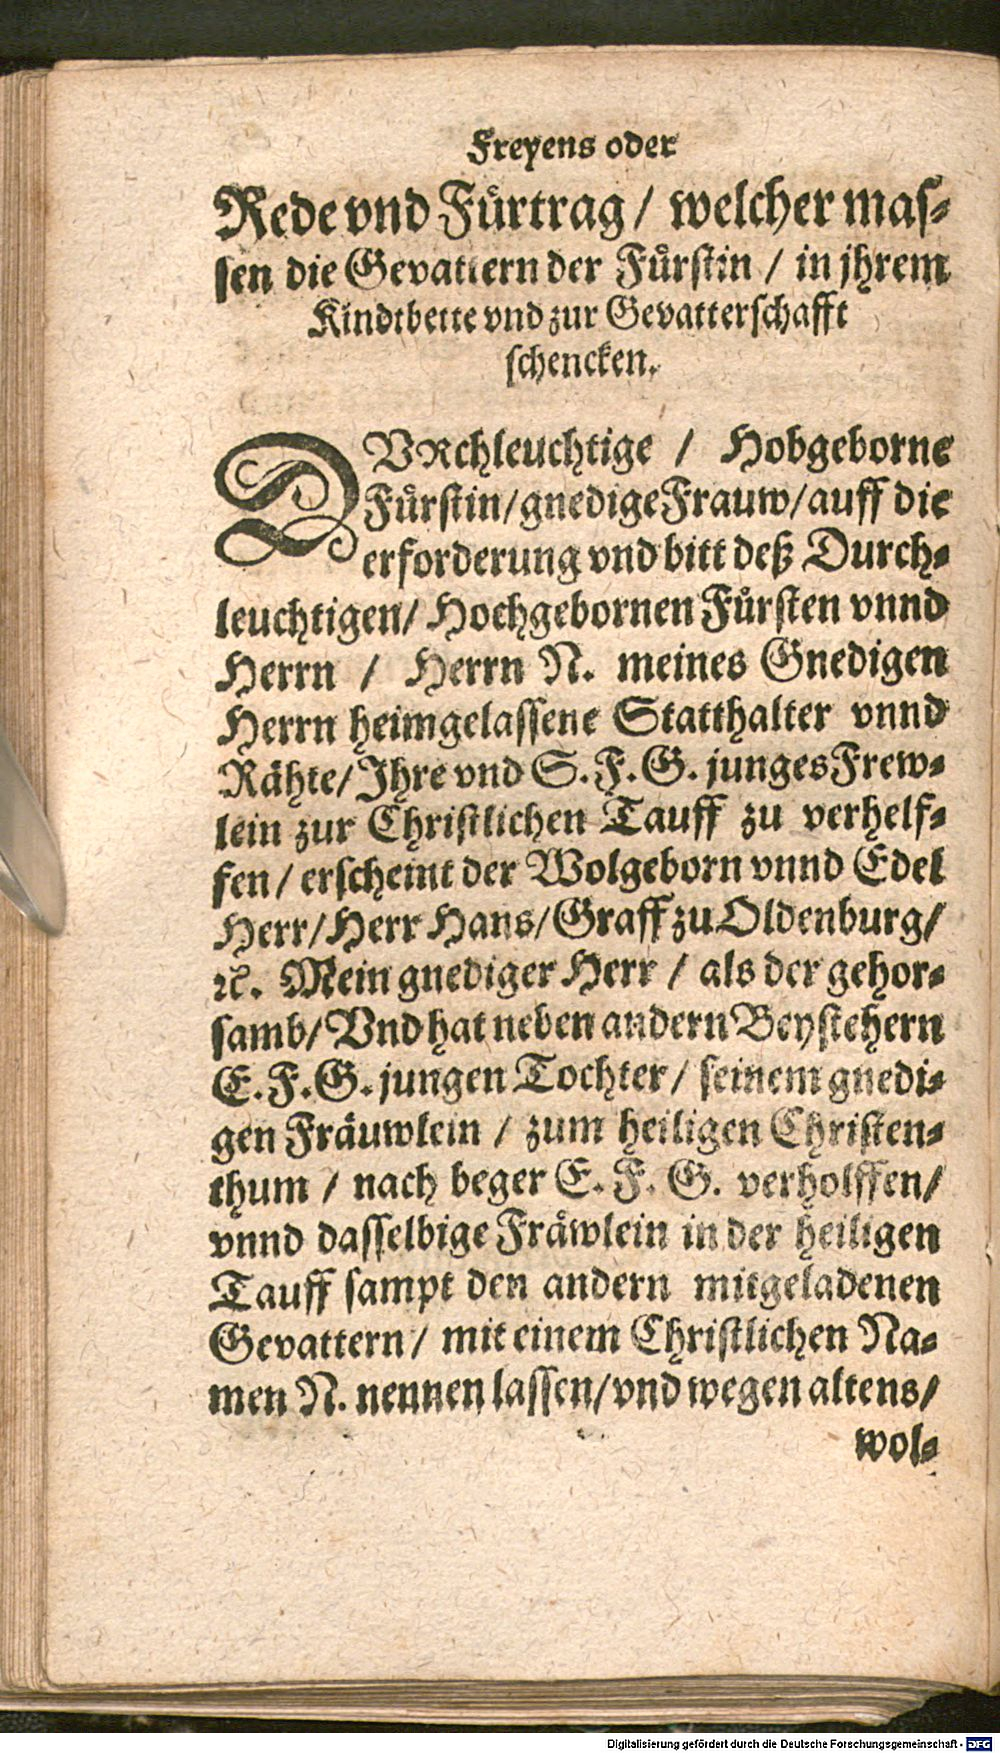 Freyens oder
Rede vnd Fuͤrtrag / welcher maſ⸗
ſen die Gevattern der Fuͤrſtin / in jhrem
Kindtbette vnd zur Gevatterſchafft
ſchencken.
DVRchleuchtige / Hobgeborne
Fuͤrſtin / gnedige Frauw / auff die
erforderung vnd bitt deß Durch⸗
leuchtigen / Hochgebornen Fuͤrſten vnnd
Herrn / Herrn N. meines Gnedigen
Herrn heimgelaſſene Statthalter vnnd
Raͤhte / Jhre vnd S. F. G. junges Frew⸗
lein zur Chriſtlichen Tauff zu verhelf⸗
fen / erſcheint der Wolgeborn vnnd Edel
Herr / Herr Hans / Graff zu Oldenburg /
ꝛc. Mein gnediger Herr / als der gehor⸗
ſamb / Vnd hat neben andern Beyſtehern
E. F. G. jungen Tochter / ſeinem gnedi⸗
gen Fraͤuwlein / zum heiligen Chriſten⸗
thum / nach beger E. F. G. verholffen /
vnnd daſſelbige Fraͤwlein in der heiligen
Tauff ſampt den andern mitgeladenen
Gevattern / mit einem Chriſtlichen Na⸗
men N. nennen laſſen / vnd wegen altens /
wol⸗
Digitalisierung gefördert durch die Deutsche Forschungsgemeinschaft - DFG